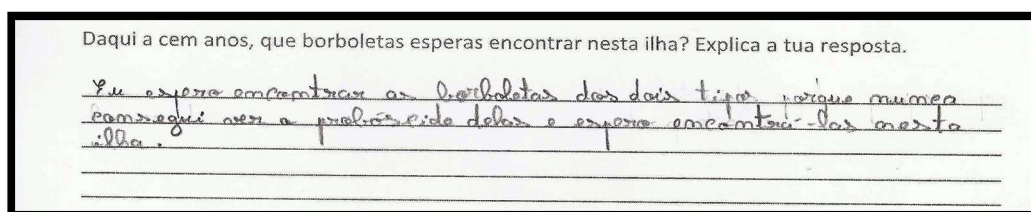 Daqui a cem anos, que borboletas esperas encontrar nesta ilha? Explica a tua resposta.
Eu espero encontrar as borboletas dos dois tipos porque nunca
consegui ver a probóscide delas e espero encontrá-las nesta
ilha.